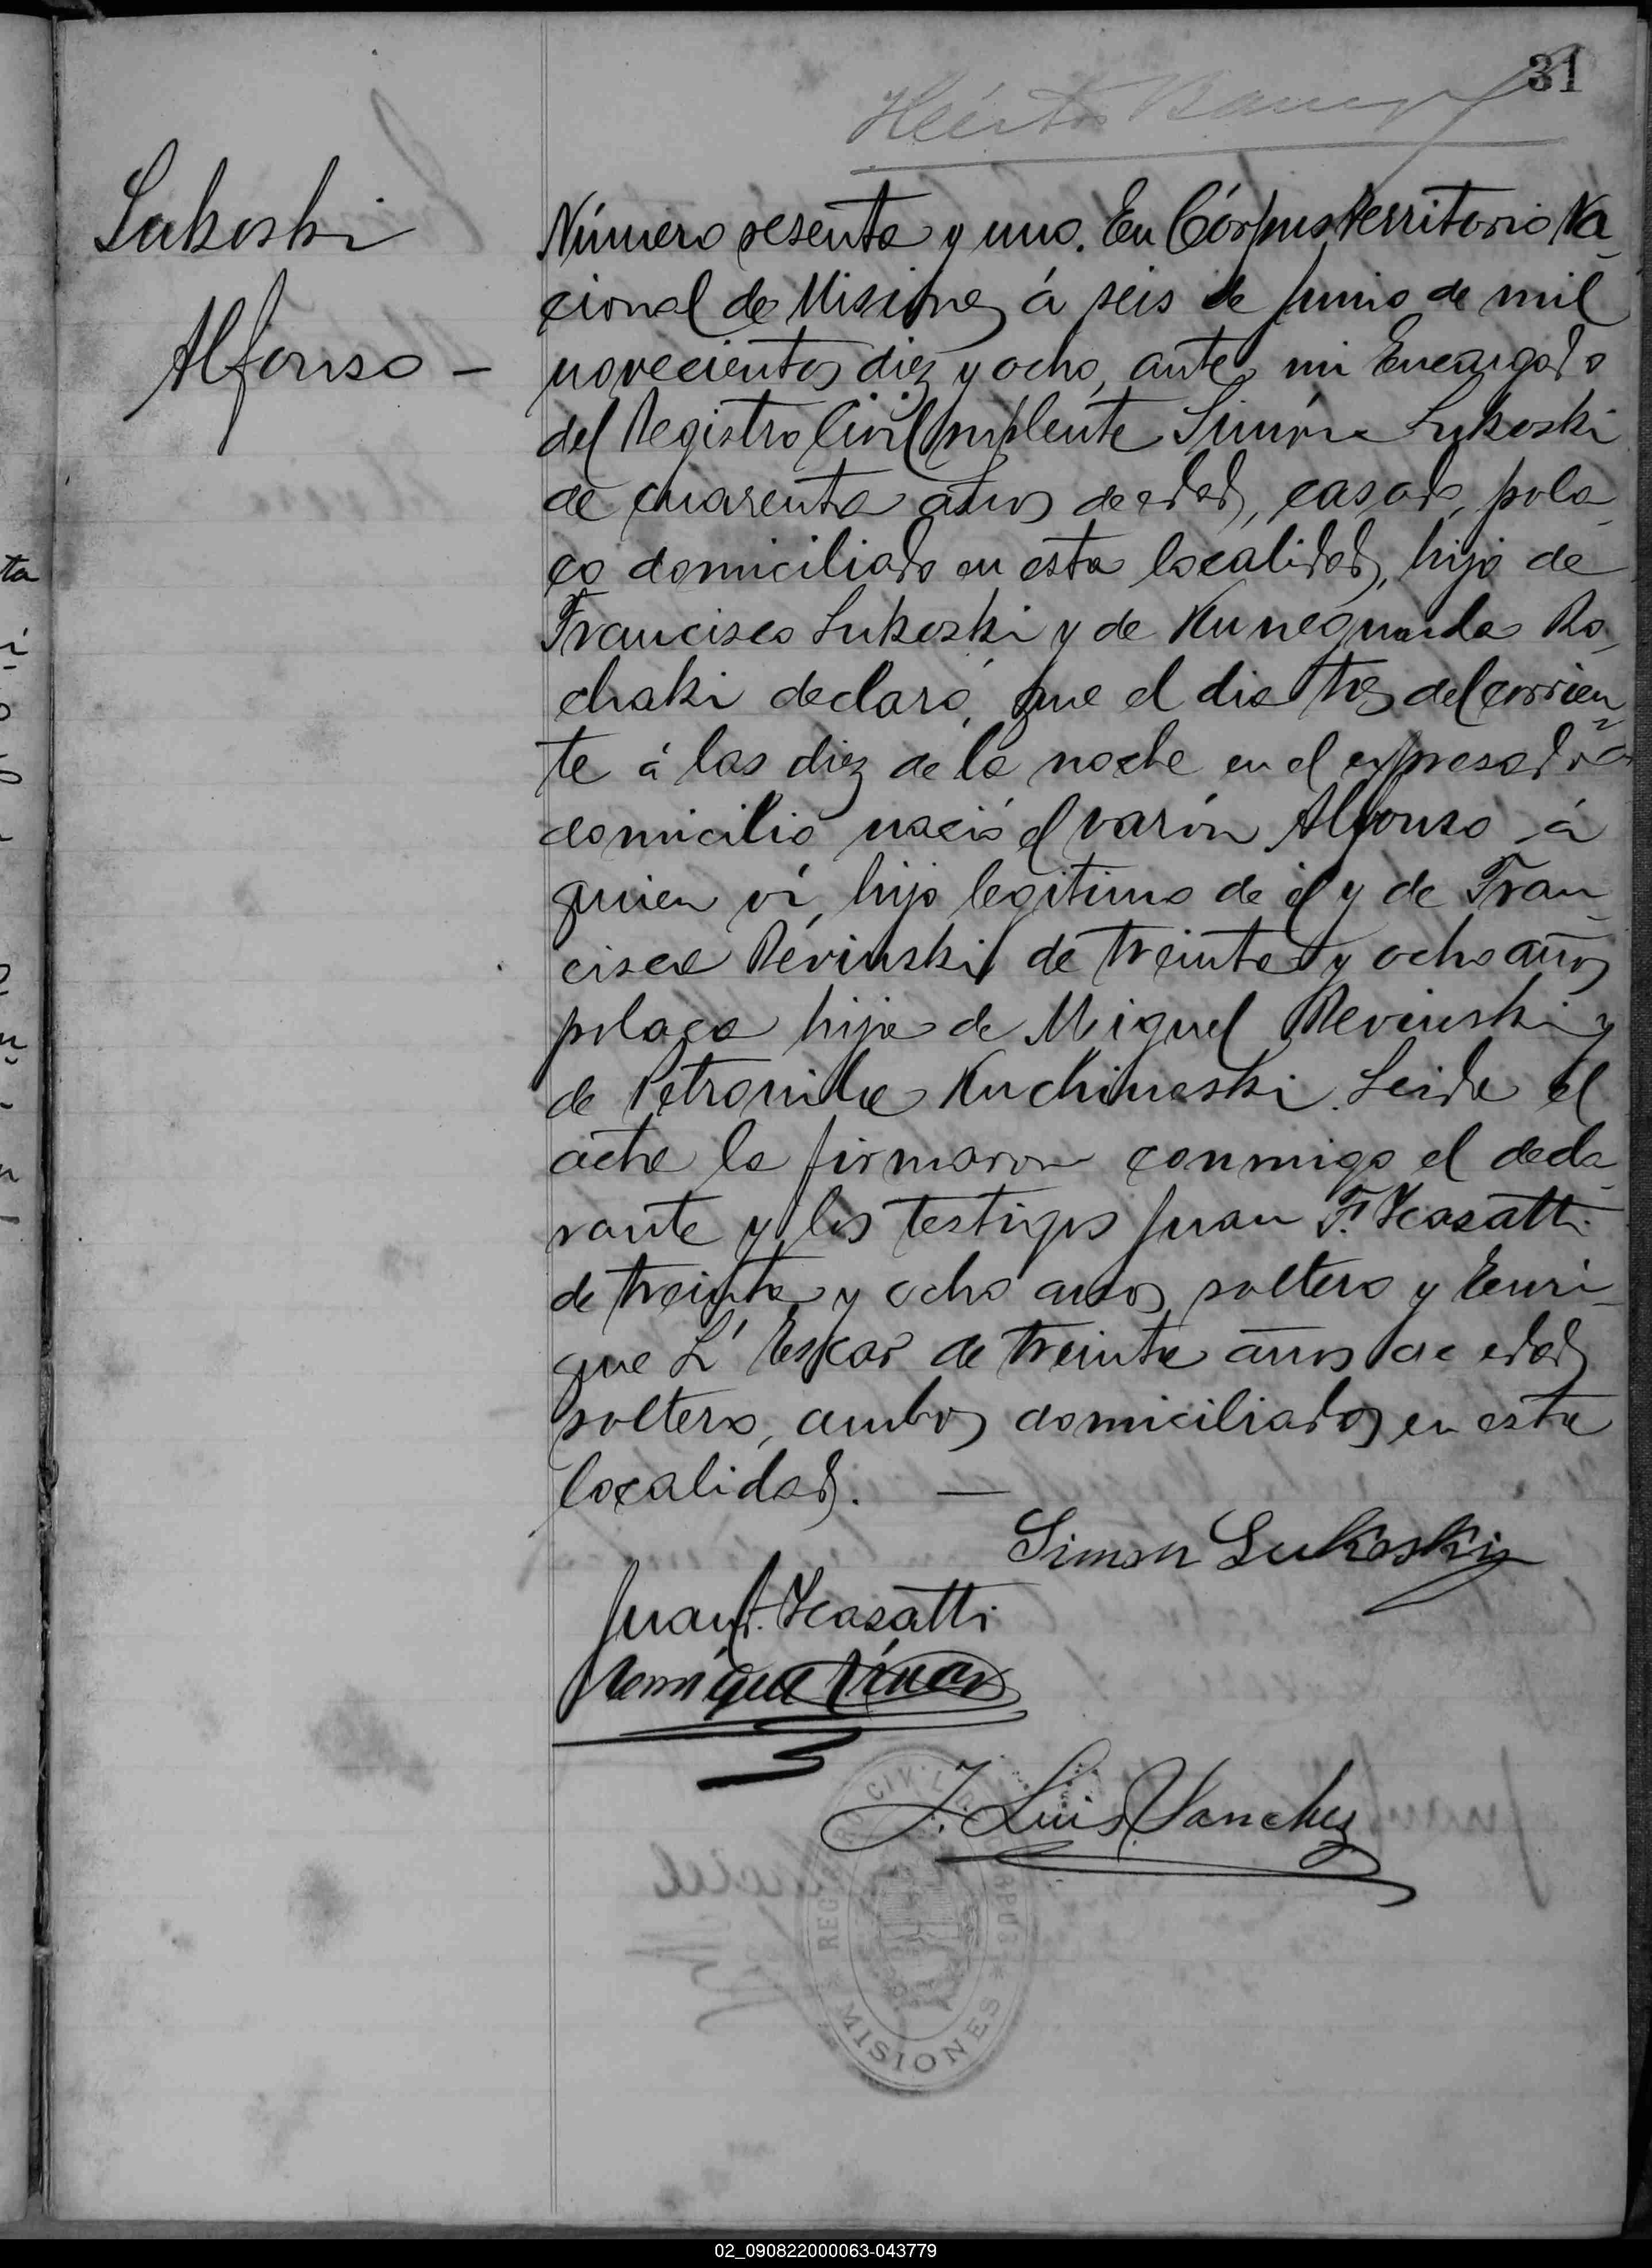 31
Héctor
Lukoski
Alfonso –
Número sesenta y uno. En Córpus Territorio Na-
cional de Misiones á seis de Junio de mil
novecientos diez y ocho, ante mi Encargado
del Registro Civil suplente Simón Lukoski
de cuarenta años de edad, casado, pola-
co domiciliado en esta localidad, hijo de
Francisco Lukoski y de Kunegunda Ro-
chaki declaró, que el dia tres del corrien-
te á las diez de la noche en el expresado
domicilio nació el varón Alfonso á
quien ví, hijo legitimo de él y de Fran-
cisca Revinski de treinta y ocho años
polaca hija de Miguel Revinski y
de Petronila Kuchineski. Leida el
acta la firmaron conmigo el decla-
rante y los testigos Juan F. Icasatti
de treinta y ocho años, soltero y Enri-
que L' Escar de treinta años de edad
soltero, ambos domiciliados en esta
localidad. —
Simon Lukoski
Juan F. Icasatti
Enrique
J. Luis Sanchez
REGISTRO CIVIL
CORPUS
MISIONES
02_090822000063-043779